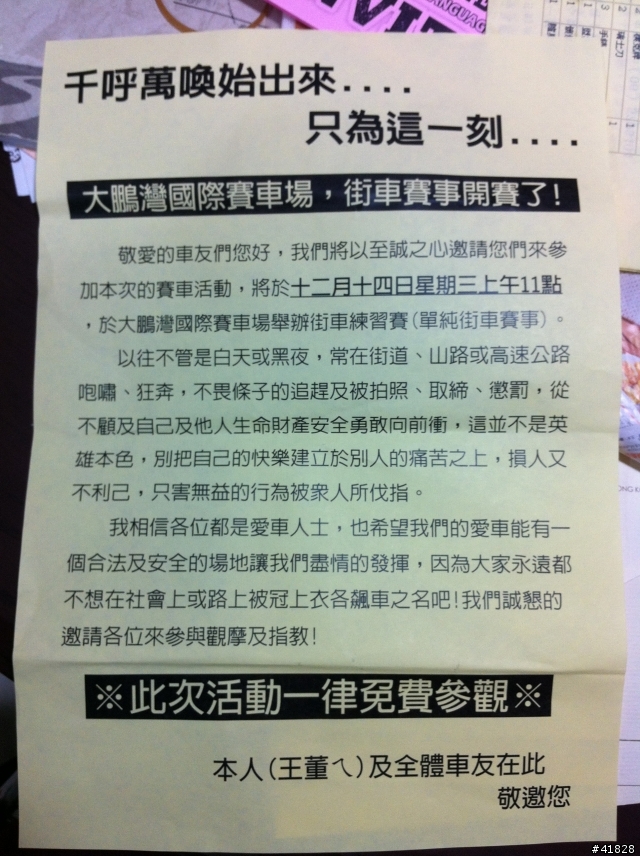 LANGUAGE
千呼萬喚始出來....
只為這一刻....
大鵬灣國際賽車場，街車賽事開賽了!
敬愛的車友們您好，我們將以至誠之心邀請您們來參
加本次的賽車活動，將於十二月十四日星期三上午11點
，於大鵬灣國際賽車場舉辦街車練習賽(單純街車賽事)。
以往不管是白天或黑夜，常在街道、山路或高速公路
咆嘯、狂奔，不畏條子的追趕及被拍照、取締、懲罰，從
不顧及自己及他人生命財產安全勇敢向前衝，這並不是英
雄本色，別把自己的快樂建立於別人的痛苦之上，損人又
不利己，只害無益的行為被眾人所伐指。
我相信各位都是愛車人士，也希望我們的愛車能有一
個合法及安全的場地讓我們盡情的發揮，因為大家永遠都
不想在社會上或路上被冠上衣各飆車之名吧!我們誠懇的
邀請各位來參與觀摩及指教!
※此次活動一律免費參觀※
本人(王董ㄟ)及全體車友在此
敬邀您
#41828